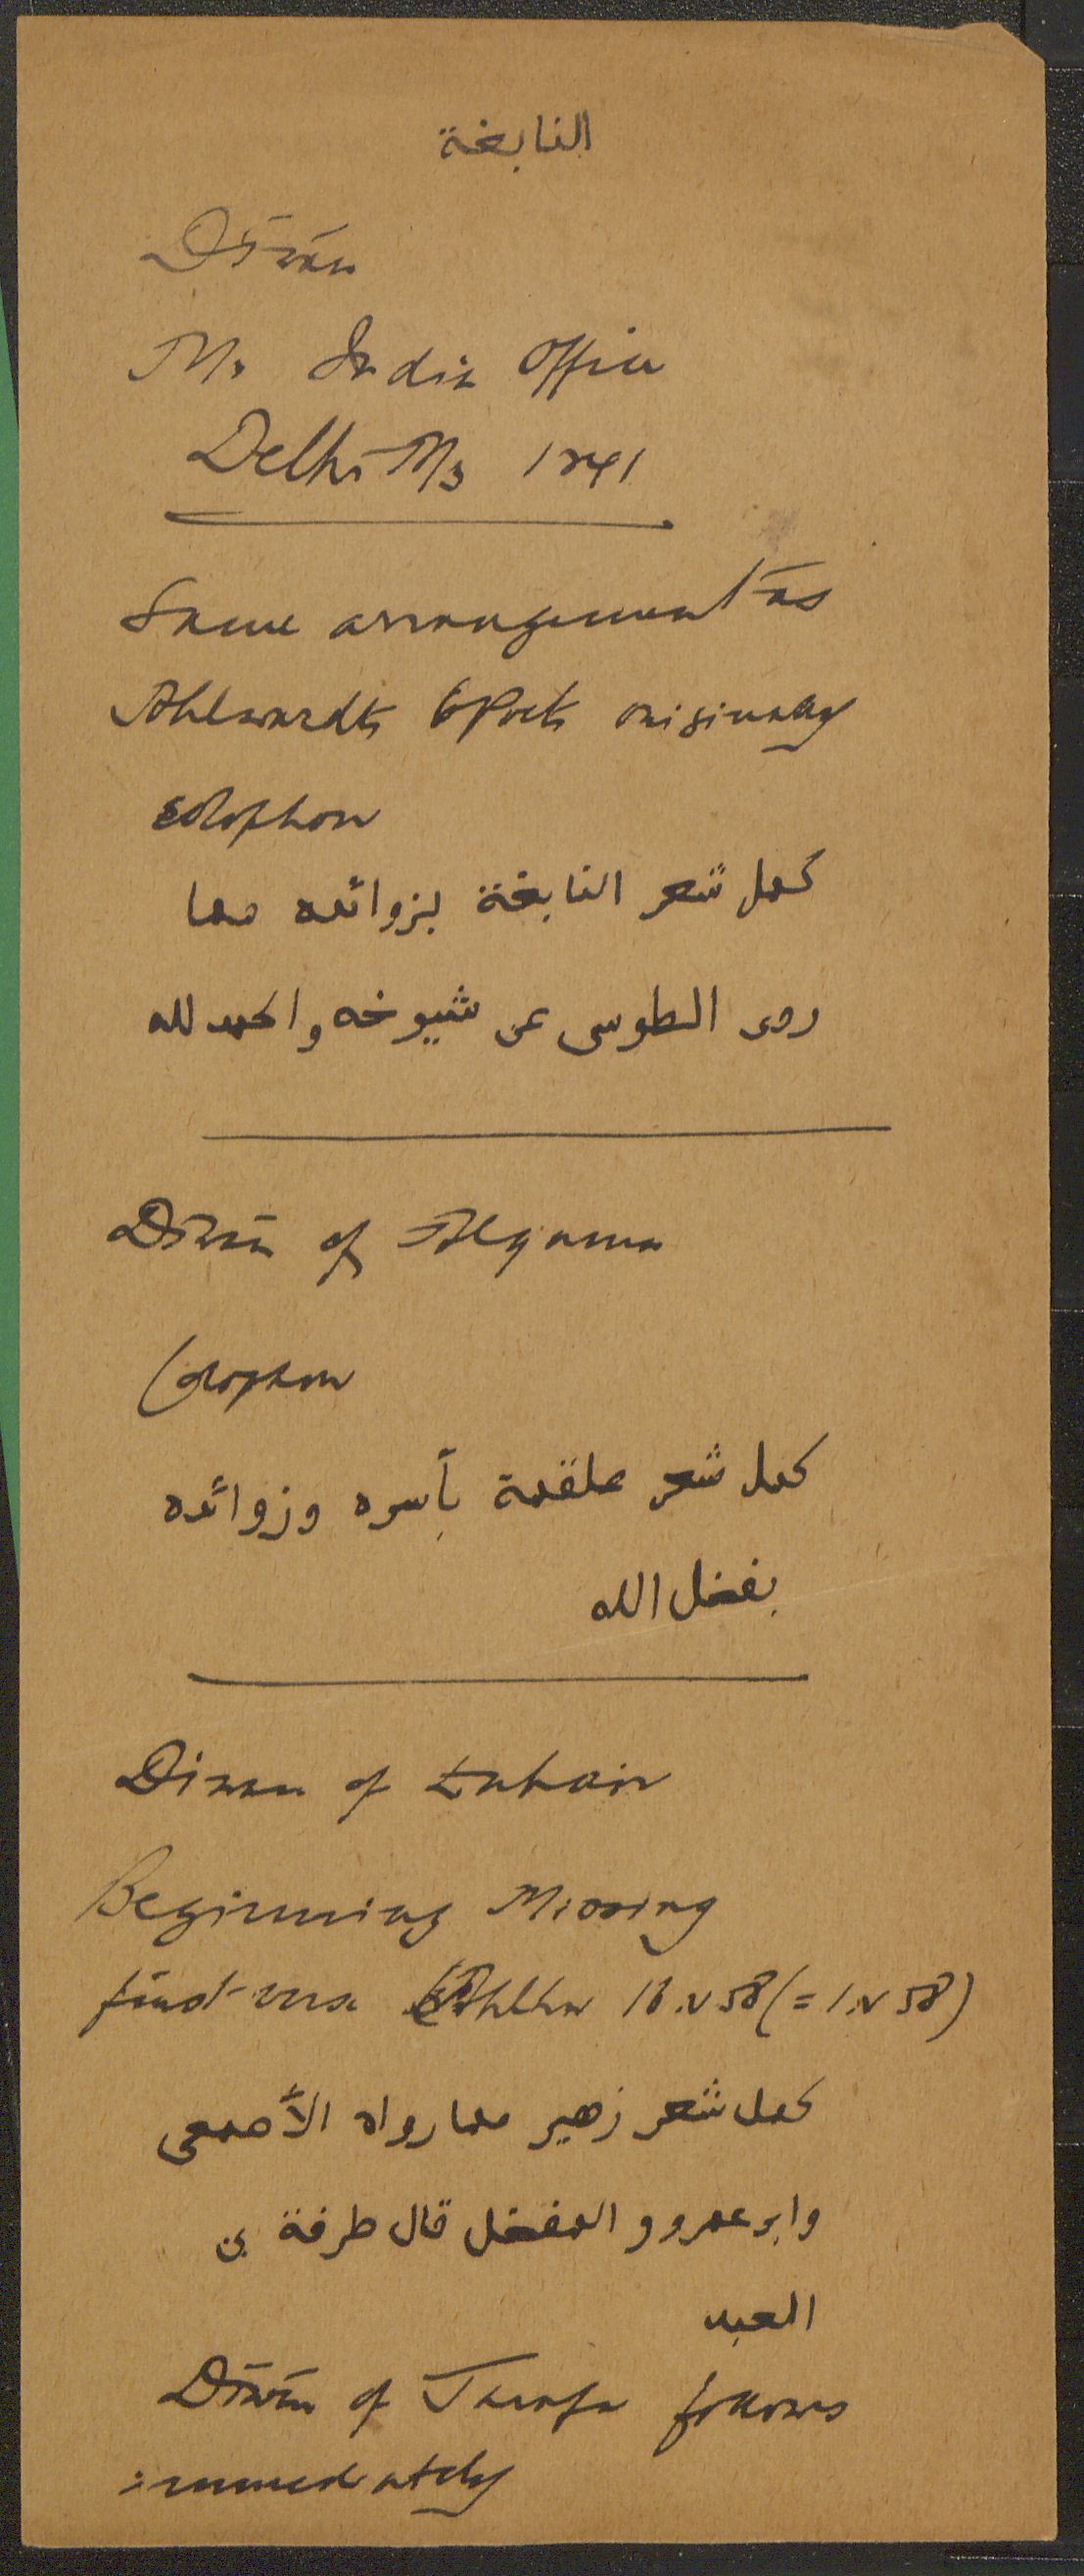 النابغة
Dīwān
Ms India Office
Delhi Ms 1241
Same arrangement as
Ahlwardts 6 Poets originally
colophon
كمل شعر النابغة بزوائده مما
روى الطوسى عن شيوخه والحمد لله
Dīwān of Alqama
Colophon
كمل شعر علقمة بأسره وزوائده
بفضل الله
Diwan of Zuhair
Beginning Missing
first verse Ahlw 16.v 58 (= 1.v 58)
كمل شعر زهير مما رواه الأصمعى
وابو عمرو و المفضل قال طرفة بن
العبد
Dīwān of Tarafa follows
immediately